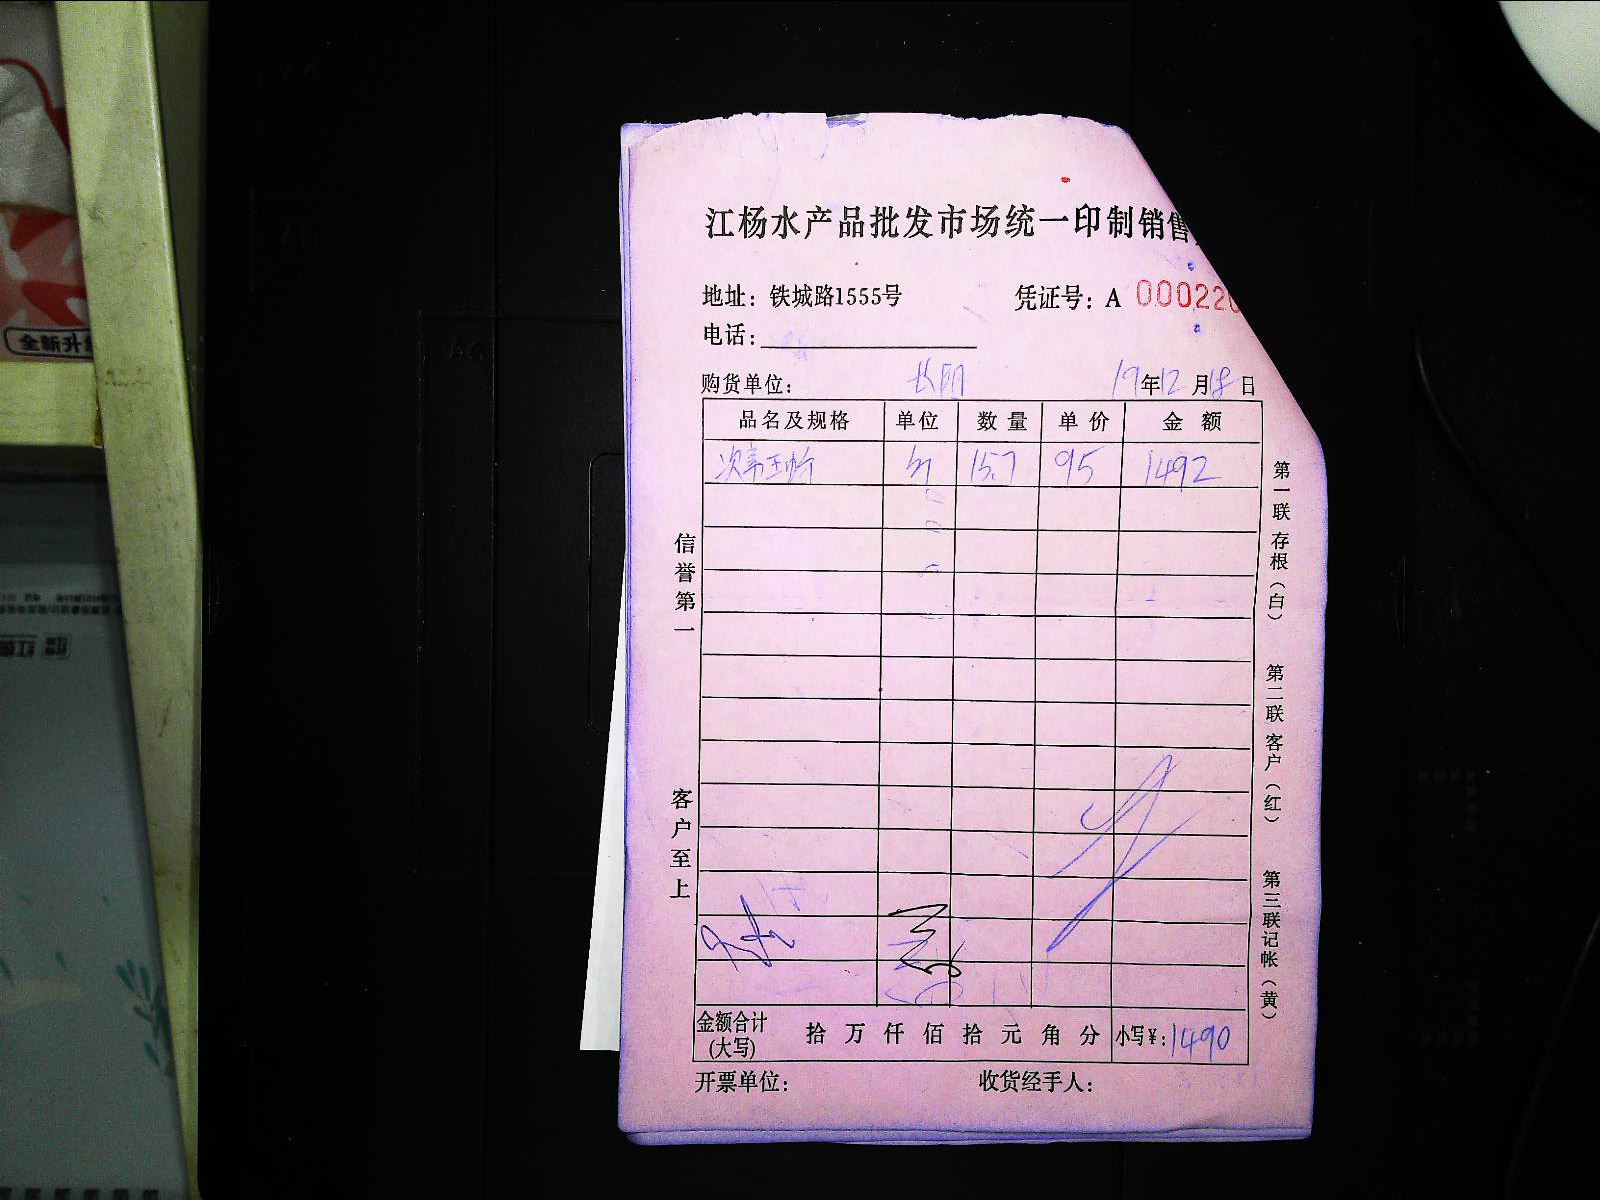 江杨水产品批发市场统一印制销售
地址：铁城路1555号
凭证号：A 00022
电话：
购货单位：
19年12月18日
品名及规格 单位 数量 单价 金额
15.7 95 1492
信誉第一
客户至上
第一联 存根（白）
第二联 客户（红）
第三联 记帐（黄）
金额合计（大写） 拾万仟佰拾元角分 小写¥：1490
开票单位： 收货经手人：
全新升